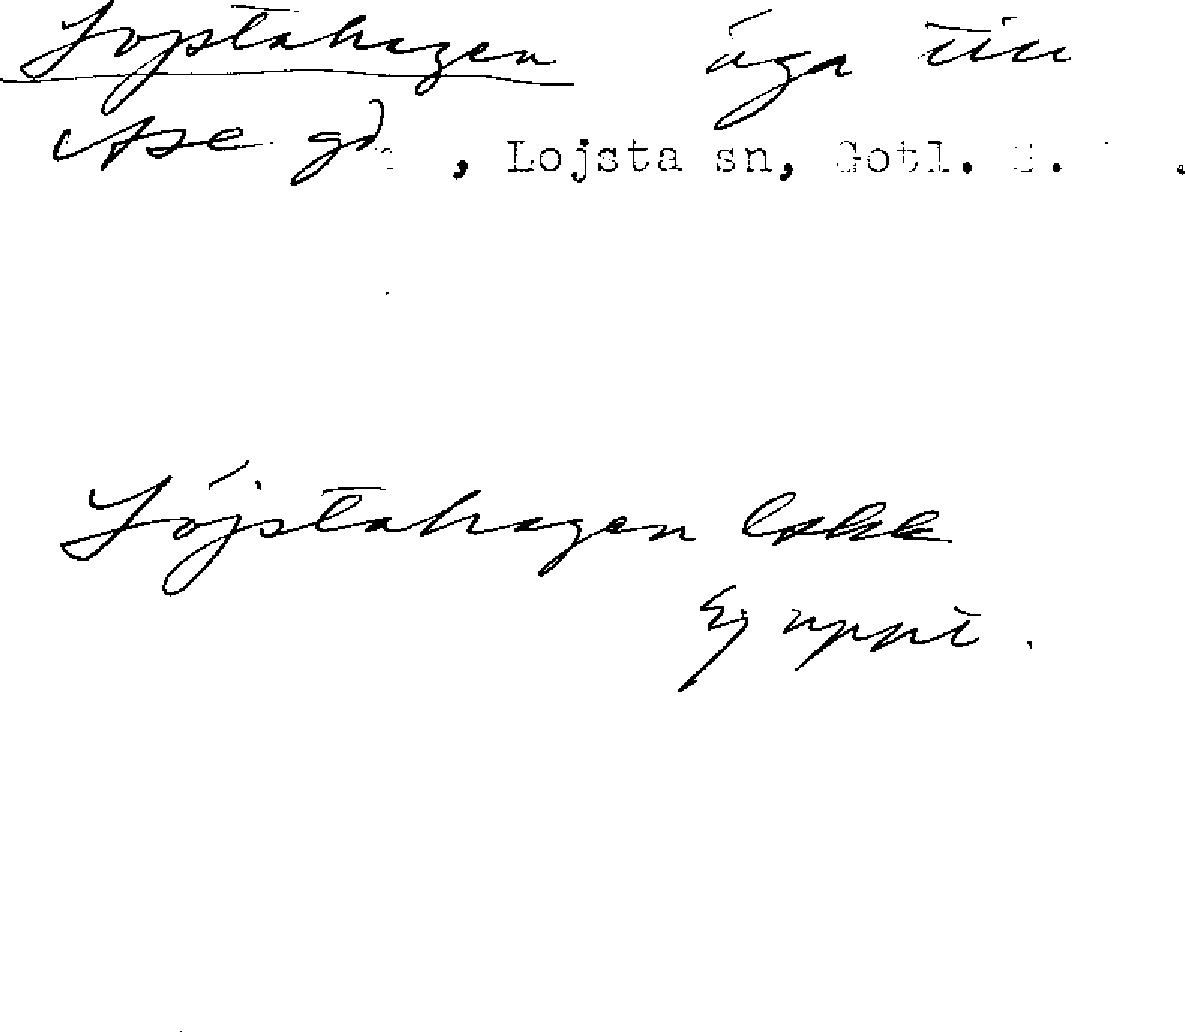 Lojstahagen äga till
Ase gd , Lojsta sn, Gotl. l.
Löjstahagen
Ej uppt.